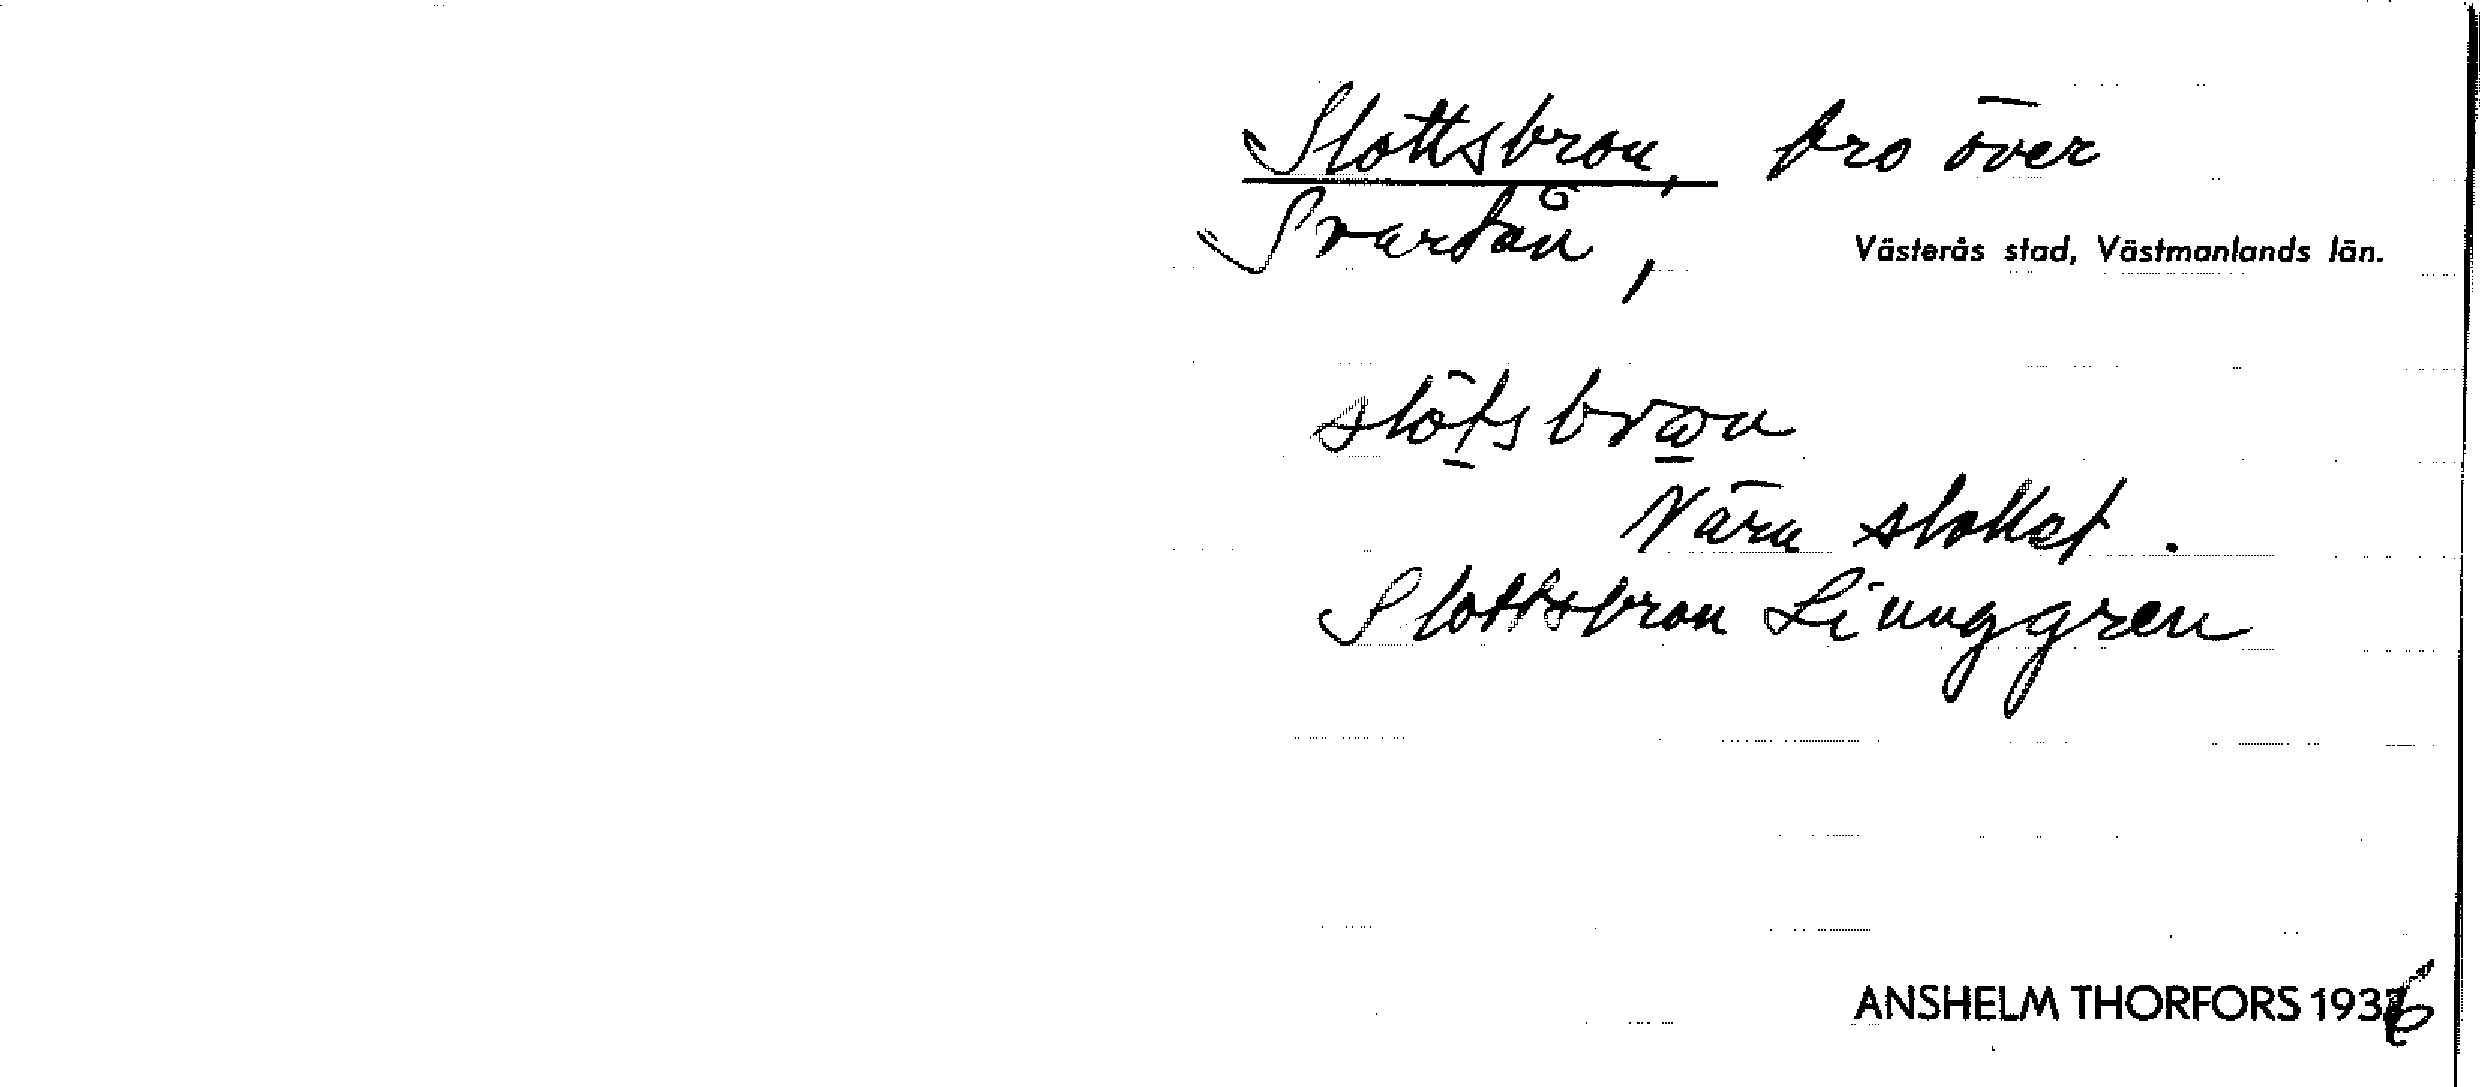 Slottsbron, bro över
Svartån,
Västerås stad, Västmanlands län.
slòtsbrωn
Nära slottet.
Slottsbron Ljunggren
ANSHELM THORFORS 1936